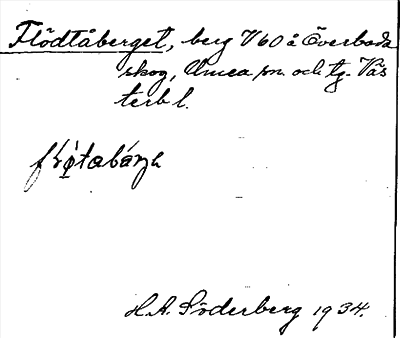 Flödtåberget, berg V60 å Överboda
skog, Umea sn. och tg. Väs
terb l.
H. A. Söderberg 1934.